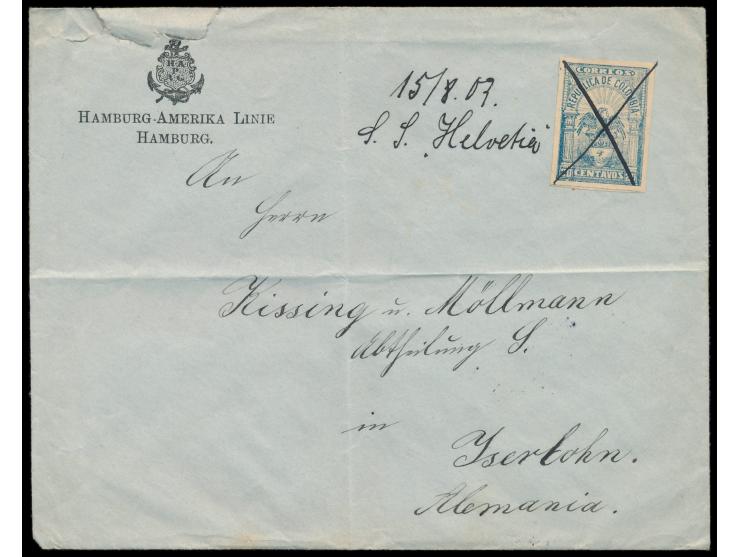 H.A.
P.
A.G.
HAMBURG-AMERIKA LINIE
HAMBURG.
15/8.02.
S. S. Helvetia
CORREOS
REPUBLICA DE COLOMBIA
CENTAVOS
An
Herrn
Kissing u. Möllmann
Abtheilung S.
in
Iserlohn.
Alemania.